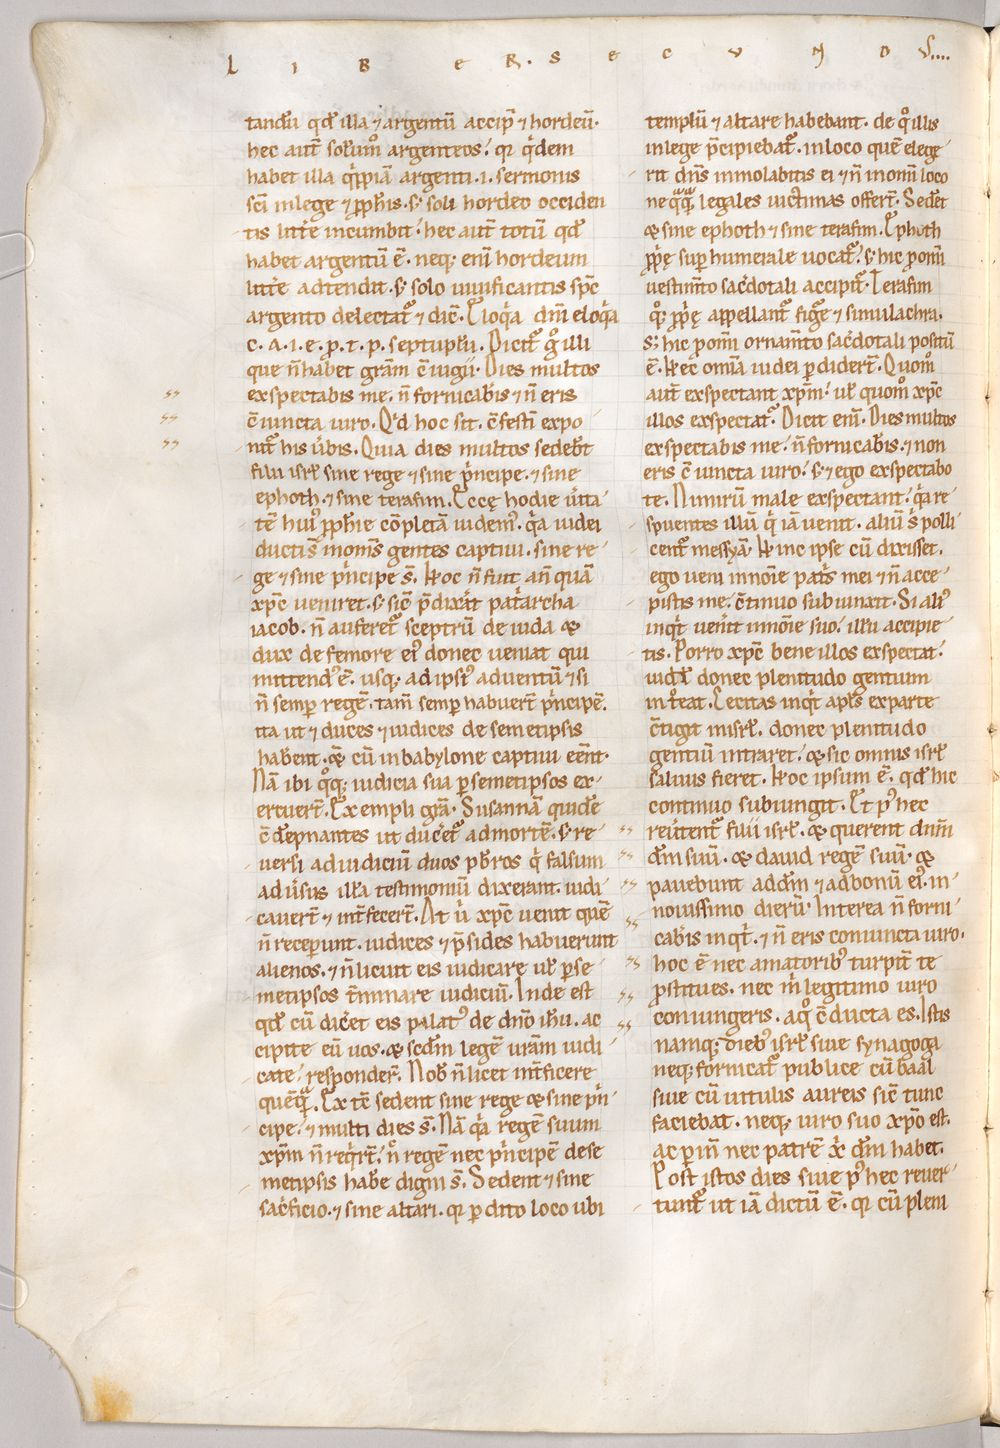 L I B E R . S E C V N D V S....
tandū qđ illa ⁊ argentū accip̄ ⁊ hordeū.
hec aut̄ solum̊ argenteos. qr q̇dem
habet illa q̇ppiā argenti .i. sermonis
sc̄i in lege ⁊ ꝓph̄is. s; soli hordeo occiden
tis litt̄e incumbit. hec aut̄ totū qđ
habet argentū ē. neq; eni hordeum
litt̄e adtendit. s; solo uiuificantis sp̄c
argento delectat᷑ ⁊ dic̄. Eloq̇a dn̄i eloq̇a
c. a. i. e. p. t. p. septuplū. Dicit᷑ ġ illi
que n̄ habet grām c̄iugii. Dies multos
exspectabis me. n̄ fornicab̄is ⁊ n̄ eris
c̄iuncta uiro. Qđ hoc sit. c̄festī expo
nit᷑ his ūbis. Quia dies multos sedeb̄t
filii isrł sine rege ⁊ sine p̄ncipe. ⁊ sine
ephoth. ⁊ sine terafim. Eccę hodie ūita
tē hui᷒ ꝓph̄ie cōpletā uidem᷒. q̇a iudei
ductis̄ in om̄s gentes captiui. sine re
ge ⁊ sine p̄ncipe s̄. Hoc n̄ fuit an̄ quā
xp̄c ueniret. s; sic̄ p̄dixāt pat̄archa
iacob. n̄ auferet᷑ sceptrū de iuda &
dux de femore ei᷒ donec ueniat qui
mittend᷒ ē. usq; ad ipsi᷒ aduentū ⁊ si
n̄ semp regē. tam̄ semp habuer̄t p̄ncipē.
ita ut ⁊ duces ⁊ iudices de semetipsis
hab̄ent. & cū in babylone captiui eēnt.
Nā ibi q̊q; iudicia sua p semetipsos ex
ercuer̄t. Exempli grā. Susannā quidē
c̄dēpnantes ut ducet᷑ ad mortē. s; re
uersi ad iudiciū duos pb̄ros q̇ falsum
adūsus illā testimoniū dixerant. iudi
cauer̄t ⁊ int̄fecer̄t. At ū xp̄c uenit quē
n̄ receperunt. iudices ⁊ p̄sides habuerunt
alienos. ⁊ n̄ licuit eis iudicare ul̄ p se
metipsos t̄minare iudiciū. Inde est
qđ cū dic̄et eis palat᷒ de dn̄o ih̄u. ac
cipite eū uos. & scdm̄ legē urām iudi
cate. responder̄. Nob̄ n̄ licet int̄ficere
quēq᷑. Ex tē sedent sine rege & sine p̄n
cipe. ⁊ multi dies s̄. Nā q̇a regē suum
xp̄m n̄ req̇rt̄. n̊ regē nec p̄ncipē de se
metipsis hab̄e digni s̄. Sedent ⁊ sine
sac̄ficio. ⁊ sine altari. qr pdito loco ubi
templū ⁊ altare habebant. de q̊ illis
in lege p̄cipiebat᷑. in loco quē elege
rit dn̄s immolabitis ei ⁊ n̄ in om̄i loco
neq᷑q᷑ legales uictimas offert̄. Sedēt
& sine ephoth ⁊ sine terafim. Ephoth
ꝓp̄ę superhumerale uocat᷑. s; hic ꝓ om̄i
uestim̄to sac̄dotali accipit᷑. Terafim
q̊; ꝓp̄ę appellant᷑ figūę ⁊ simulachra.
s; hic ꝓ om̄i ornam̄to sac̄dotali positū
ē. Hec omīa iudei pdider̄t. Quom̊
aut̄ exspectant xp̄m. ul̄ quom̊ xp̄c
illos exspectat᷑. Dicit eni. Dies multos
exspectabis me. n̄ fornicab̄is. ⁊ non
eris c̄iuncta uiro. s; ⁊ ego exspectabo
te. Nimirū male exspectant. q̇a re
spuentes illū q̇ iā uenit. aliū s̄ polli
cent᷑ messyā. Hinc ipse cū dixisset.
ego ueni in noīe pat̄s mei ⁊ n̄ acce
pistis me. c̄tinuo subiunxit. Si ali᷒
inq̇t uen̄it in noīe suo. illū accipie
tis. Porro xp̄c bene illos exspectat.
uidꝫ donec plenitudo gentium
int̊eat. Cecitas inq̇t apl̄s ex parte
c̄tigit in isrł. donec plenitudo
gentiū intraret. & sic omnis isrł
saluus fieret. Hoc ipsum ē. qđ hic
continuo subiungit. Et p᷒ hec
reūtent᷑ filii isrł. & querent dn̄m
dm̄ suū. & dauid regē suū. &
pauebunt ad dm̄ ⁊ ad bonū ei᷒. in
nouissimo dierū. Interea n̄ forni
cab̄is inq̇t. ⁊ n̄ eris coniuncta uiro.
hoc ē nec amatorib᷒ turpit̄ te
ꝓstitues. nec m̊ legitimo uiro
coniungeris. a q̊ c̄ducta es. Istis
namq; dieb᷒ isrł siue synagoga
neq; fornicat᷑ publice cū baal
siue cū uitulis aureis sic̄ tunc
faciebat. neq; uiro suo xp̄o est.
ac pin̄ nec patrē x̄ dm̄ habet.
Post istos dies siue p᷒ hec reuer
tunt᷑ ut iā dictū ē. qr cū pleni